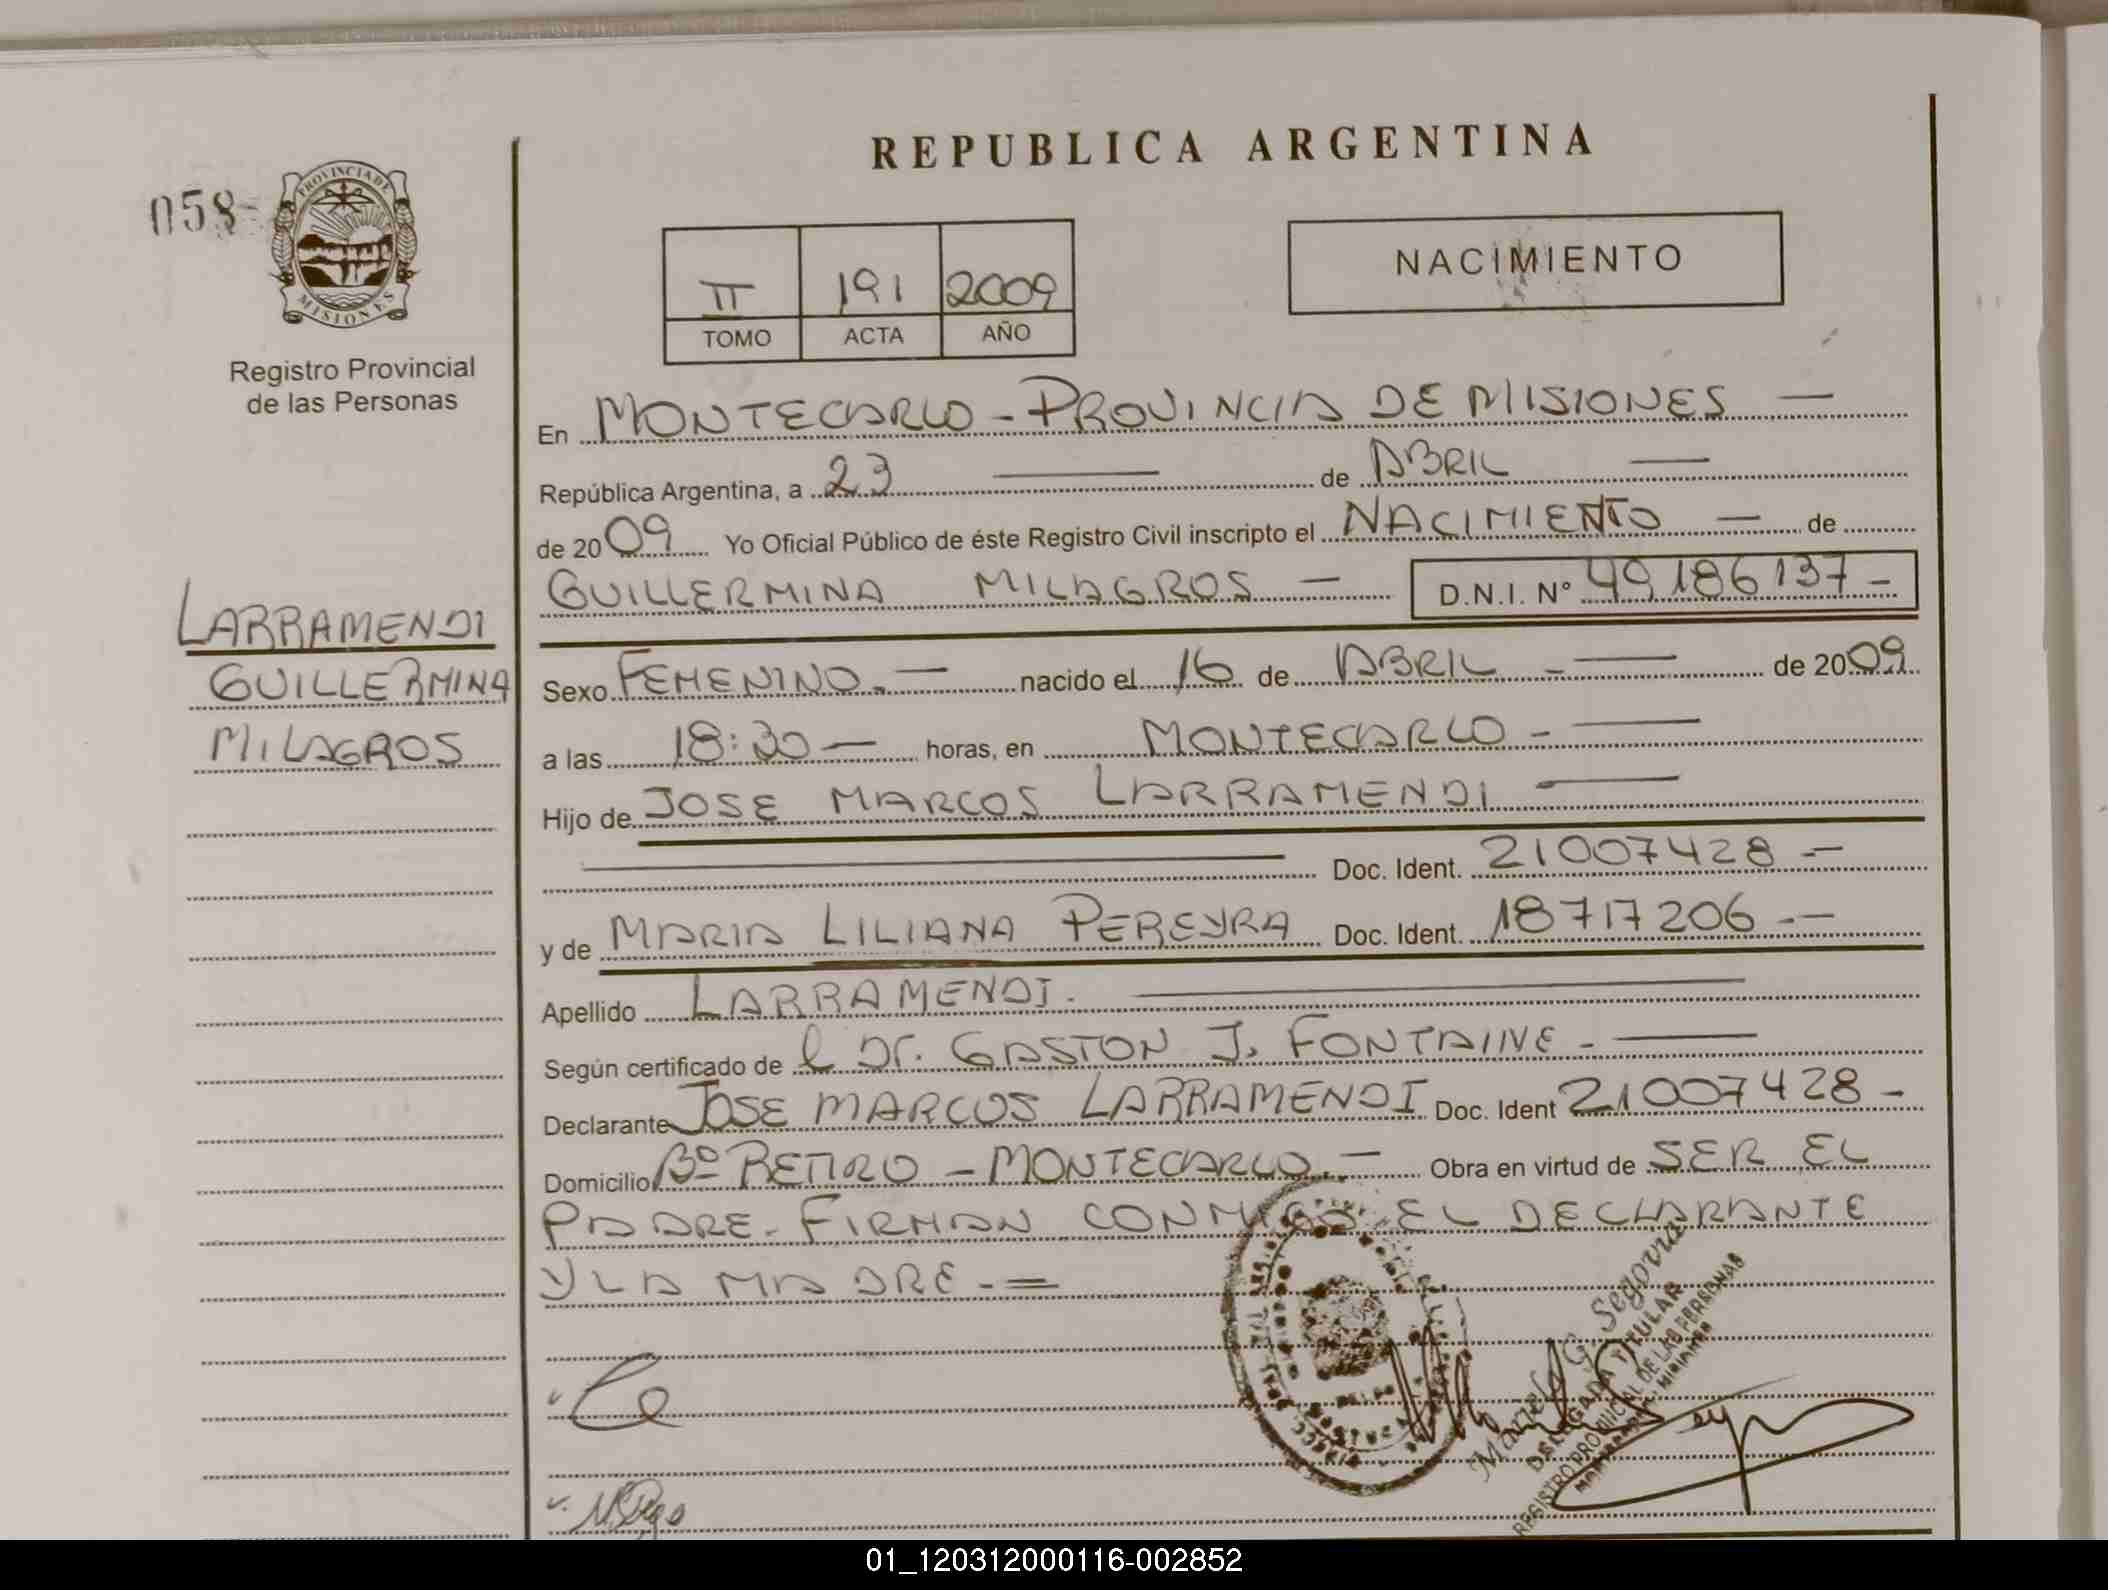 REPUBLICA ARGENTINA
058
PROVINCIA DE
MISIONES
Registro Provincial
de las Personas
II 191 2009
TOMO ACTA AÑO
NACIMIENTO
En MONTECARLO - PROVINCIA DE MISIONES —
República Argentina, a 23 — de ABRIL —
de 2009 Yo Oficial Público de éste Registro Civil inscripto el NACIMIENTO — de
GUILLERMINA MILAGROS — D.N.I. Nº 49.186.137 -
LARRAMENDI
GUILLERMINA
MILAGROS
Sexo FEMENINO. — nacido el 16 de ABRIL - — de 2009
a las 18:30 — horas, en MONTECARLO - —
Hijo de JOSE MARCOS LARRAMENDI —
Doc. Ident. 21007428 -
y de MARIA LILIANA PEREYRA Doc. Ident. 18717206 -
Apellido LARRAMENDI. —
Según certificado de l Dr. GASTON J. FONTAINE - —
Declarante JOSE MARCOS LARRAMENDI Doc. Ident 21007428 -
Domicilio Bº RETIRO - MONTECARLO. - Obra en virtud de SER EL
PADRE. FIRMAN CONMIGO EL DECLARANTE
Y LA MADRE - =
G. Segovia
DELEGADA TITULAR
REGISTRO PROVINCIAL DE LAS PERSONAS
01_120312000116-002852